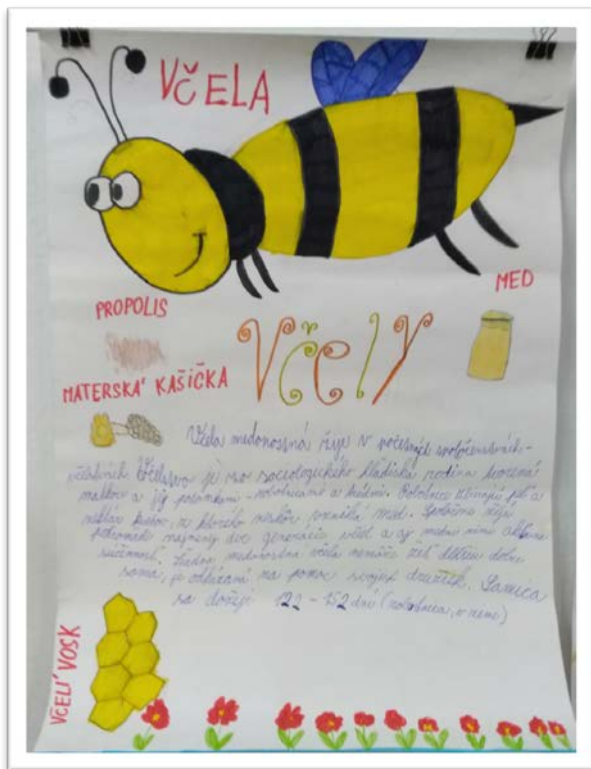 VČELA
PROPOLIS
MED
Včely
MATERSKÁ KAŠIČKA
Včela medonosná žije v početných spoločenstvách-
včelstvách Včelstvo je zo sociologického hľadiska rodina tvorená
matkou a jej potomkami - robotnicami a trúdmi. Robotnice zbierajú peľ a
nektár kvetov, z ktorého neskôr vzniká med. Spoločne žijú
pohromade najmenej dve generácie včiel a aj medzi nimi
súčinnosť. Žiadna medonosná včela nemôže žiť dlhšiu dobu
sama, je odkázaná na pomoc svojich družiek. Samica
sa dožije 122 - 152 dní (robotnica, v zime)
VČELÍ VOSK